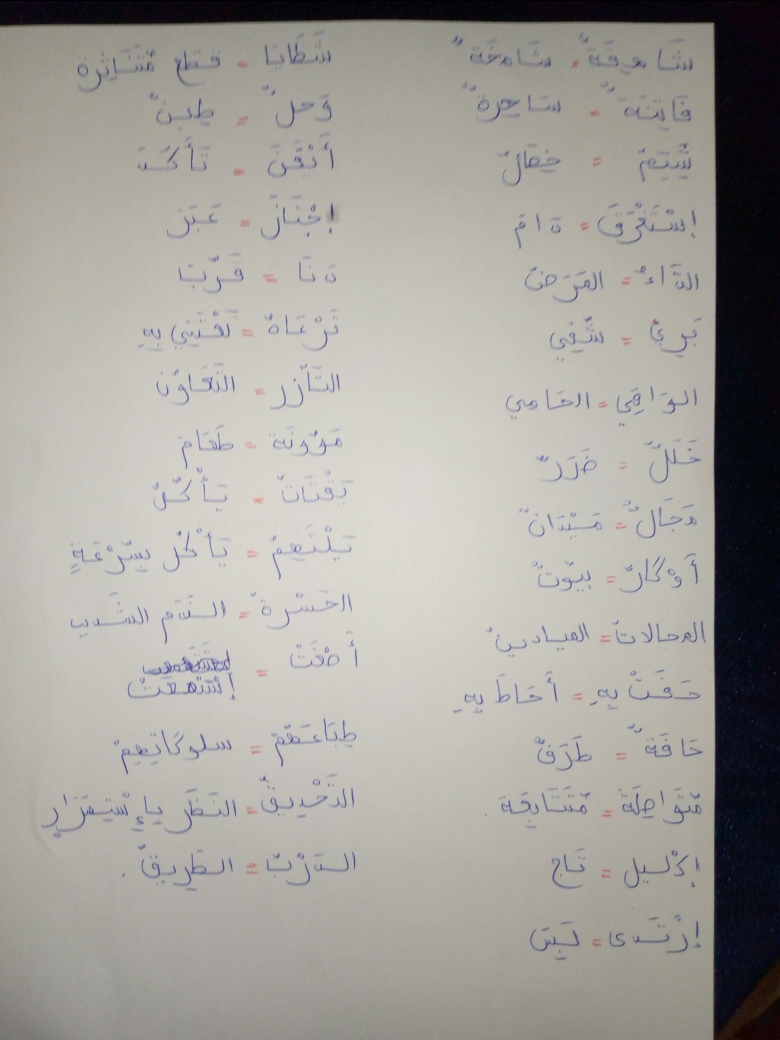 شَاهِقَةٌ = شَامِخَةٌ
فَاتِنَةٌ = سَاحِرَةٌ
شِيَمٌ = خِصَالٌ
إِسْتَغْرَقَ = دَامَ
الدَّاءُ = المَرَضُ
بَرِئَ = شُفِيَ
الوَاقِي = الحَامِي
خَلَلٌ = ضَرَرٌ
مَجَالٌ = مَيْدَانٌ
أَوْكَارٌ = بيُوتٌ
المجالاتُ = الميادينُ
حَفَّتْ بِهِ = أَحَاطَ بِهِ
حَافَةٌ = طَرَفٌ
مُتَوَاصِلَة = مُتَتَابِعَة
إِكْليل = تَاج
إِرْتَدى = لَبِسَ
شَظَايَا = قِطَع مُتَنَاثِرة
وَحلٌ = طِينٌ
أَيْقَنَ = تَأَكَّدَ
إِجْتَازَ = عَبَرَ
دَنَا = قَرُبَ
تَرْعَاهُ = تَعْتَنِي بِهِ
التَّآزر = التَّعَاوُن
مَؤُونَة = طَعَام
يَقْتَاتُ = يَأْكُلُ
يَلْتَهِمُ = يَأْكُل بِسُرْعَةٍ
الحَسْرةُ = النَّدَم الشَّديد
أَصْغَتْ = إِسْتَمَعَتْ
طِبَاعَهُمْ = سلوكَاتِهِمْ
التَّحْدِيقُ = النَّظَر بِإِسْتِمْرَارٍ
الدَّرْبُ = الطَّرِيقُ.